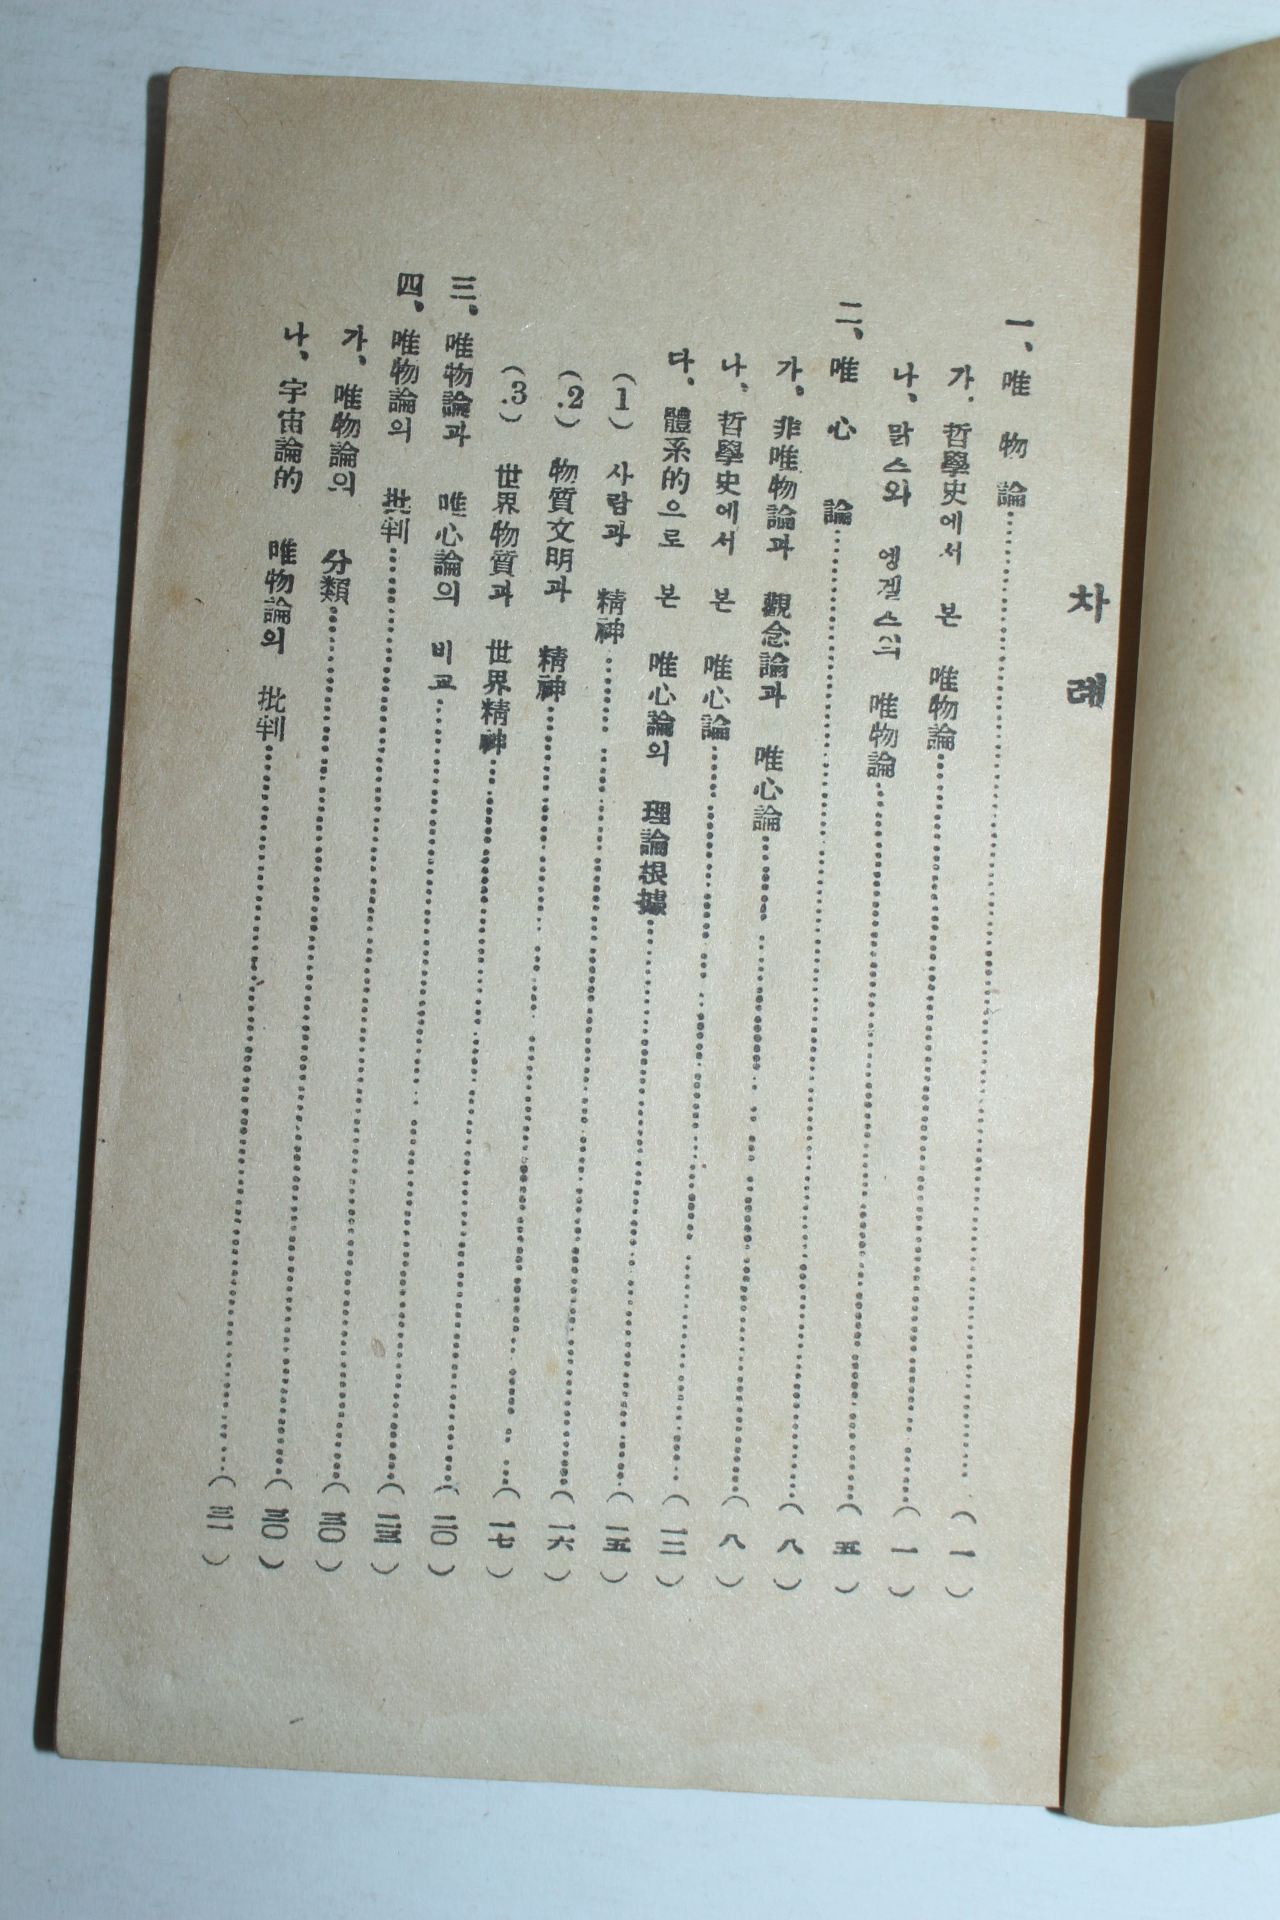 차례
一、唯物論…(一)
가. 哲學史에서 본 唯物論…(一)
나、맑스와 엥겔스의 唯物論…(五)
二、唯心論…(八)
가、非唯物論과 觀念論과 唯心論…(八)
나、哲學史에서 본 唯心論…(一三)
다、體系的으로 본 唯心論의 理論根據…(一五)
(1) 사람과 精神…(一六)
(2.) 物質文明과 精神…(一七)
(3.) 世界物質과 世界精神…(二〇)
三、唯物論과 唯心論의 비교…(二五)
四、唯物論의 批判…(三〇)
가、唯物論의 分類…(三〇)
나、宇宙論的 唯物論의 批判…(三一)